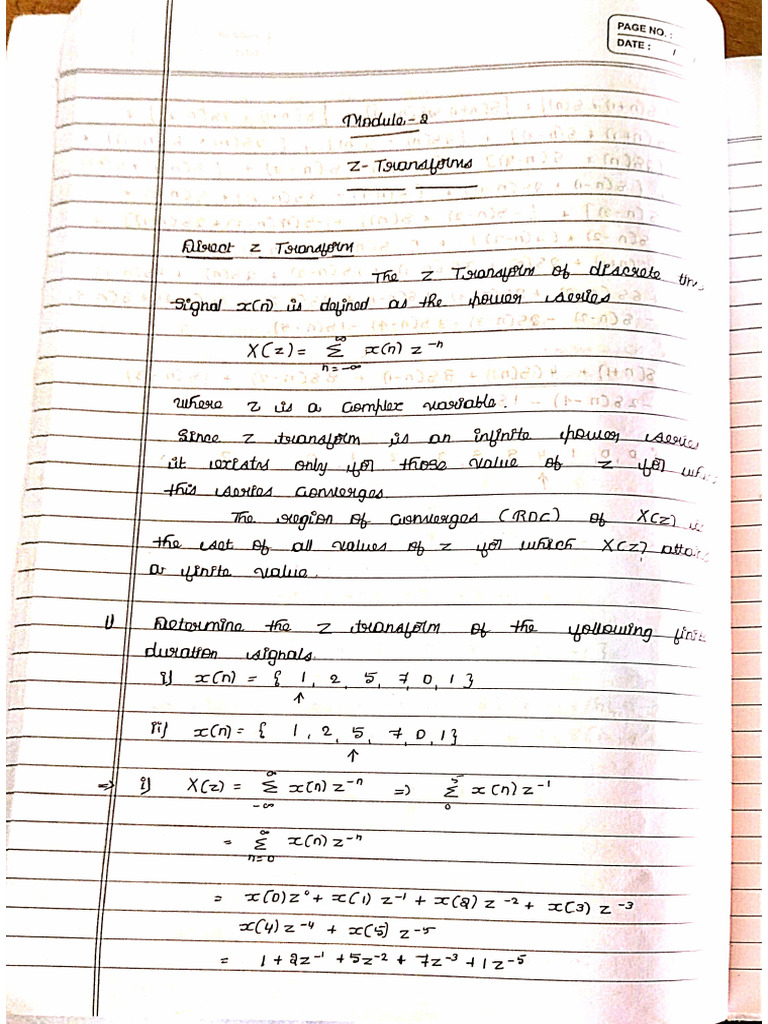 PAGE NO. :
DATE :
Module-2
Z-Transforms
Direct Z Transform
The Z Transform of discrete
Signal x(n) is defined as the power series
X(z) = ∞ Σ n=-∞ x(n) z⁻ⁿ
where z is a complex variable.
Since z transform is an infinite power series
it exists only for those value of z for
this series converges
The region of converges (ROC) of X(z) is
the set of all values of z for which X(z)
a finite value.
1) Determine the Z transform of the following
duration signals.
i) x(n) = { 1, 2, 5, 7, 0, 1 }
↑
ii) x(n) = { 1, 2, 5, 7, 0, 1 }
↑
=> i) X(z) = ∞ Σ -∞ x(n) z⁻ⁿ => 5 Σ 0 x(n) z⁻¹
= ∞ Σ n=0 x(n) z⁻ⁿ
= x(0)z⁰ + x(1) z⁻¹ + x(2) z⁻² + x(3) z⁻³
x(4) z⁻⁴ + x(5) z⁻⁵
= 1 + 2z⁻¹ + 5z⁻² + 7z⁻³ + 1z⁻⁵